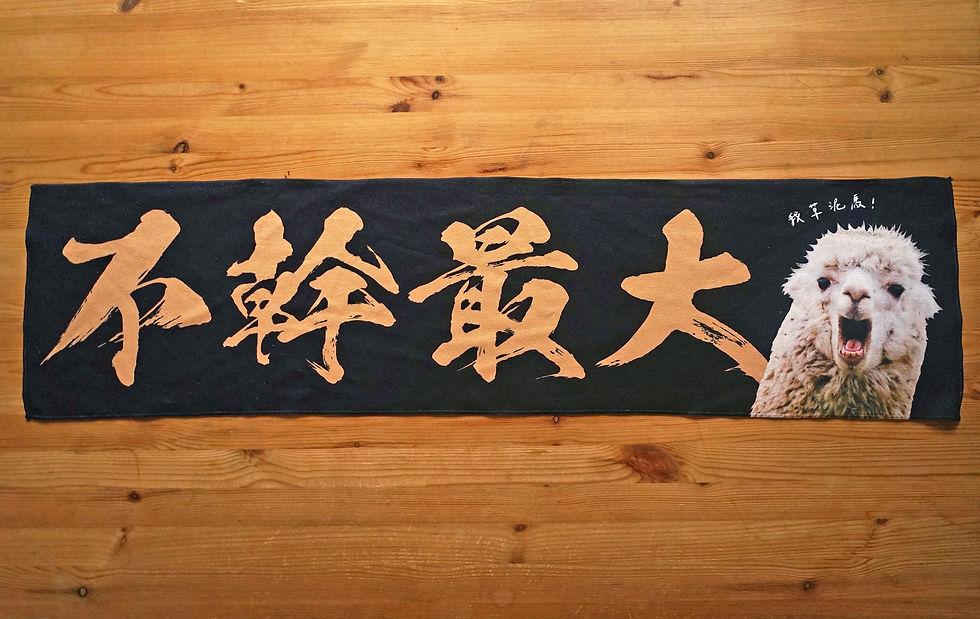 不幹最大
我草泥馬!